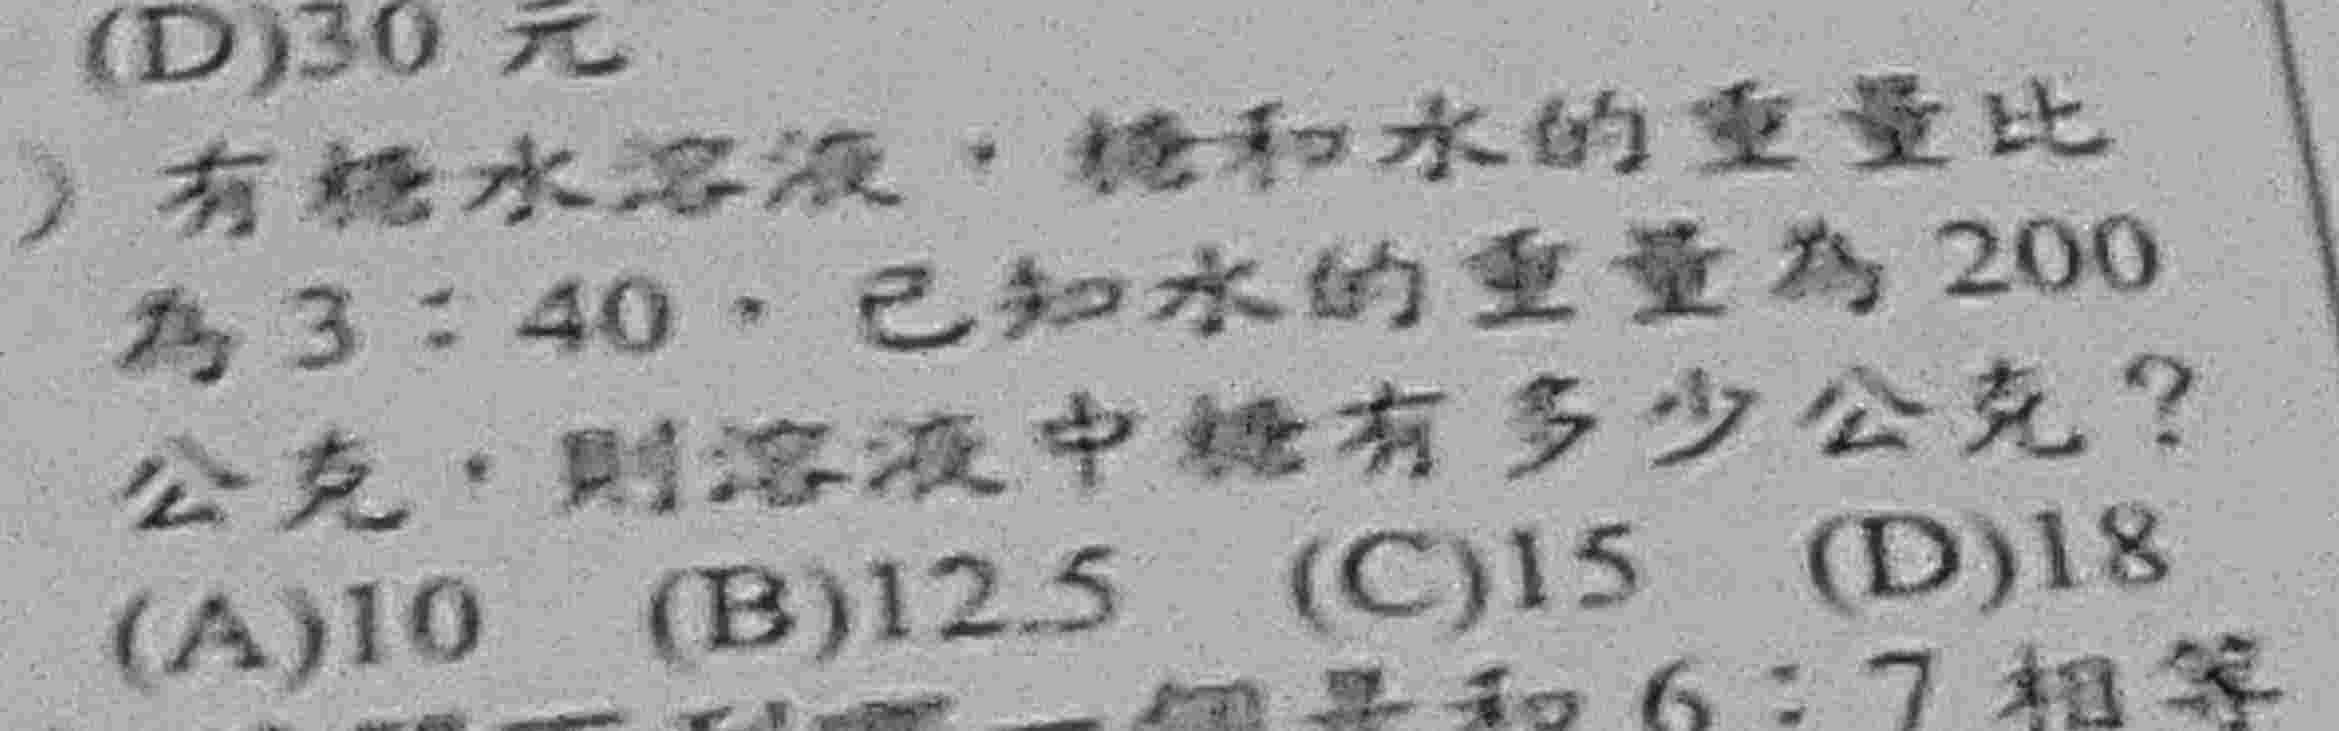 (D)30 元
) 有糖水溶液，糖和水的重量比
為 3：40，已知水的重量為 200
公克，則溶液中糖有多少公克？
(A)10 (B)12.5 (C)15 (D)18
一個是和 6：7 相等